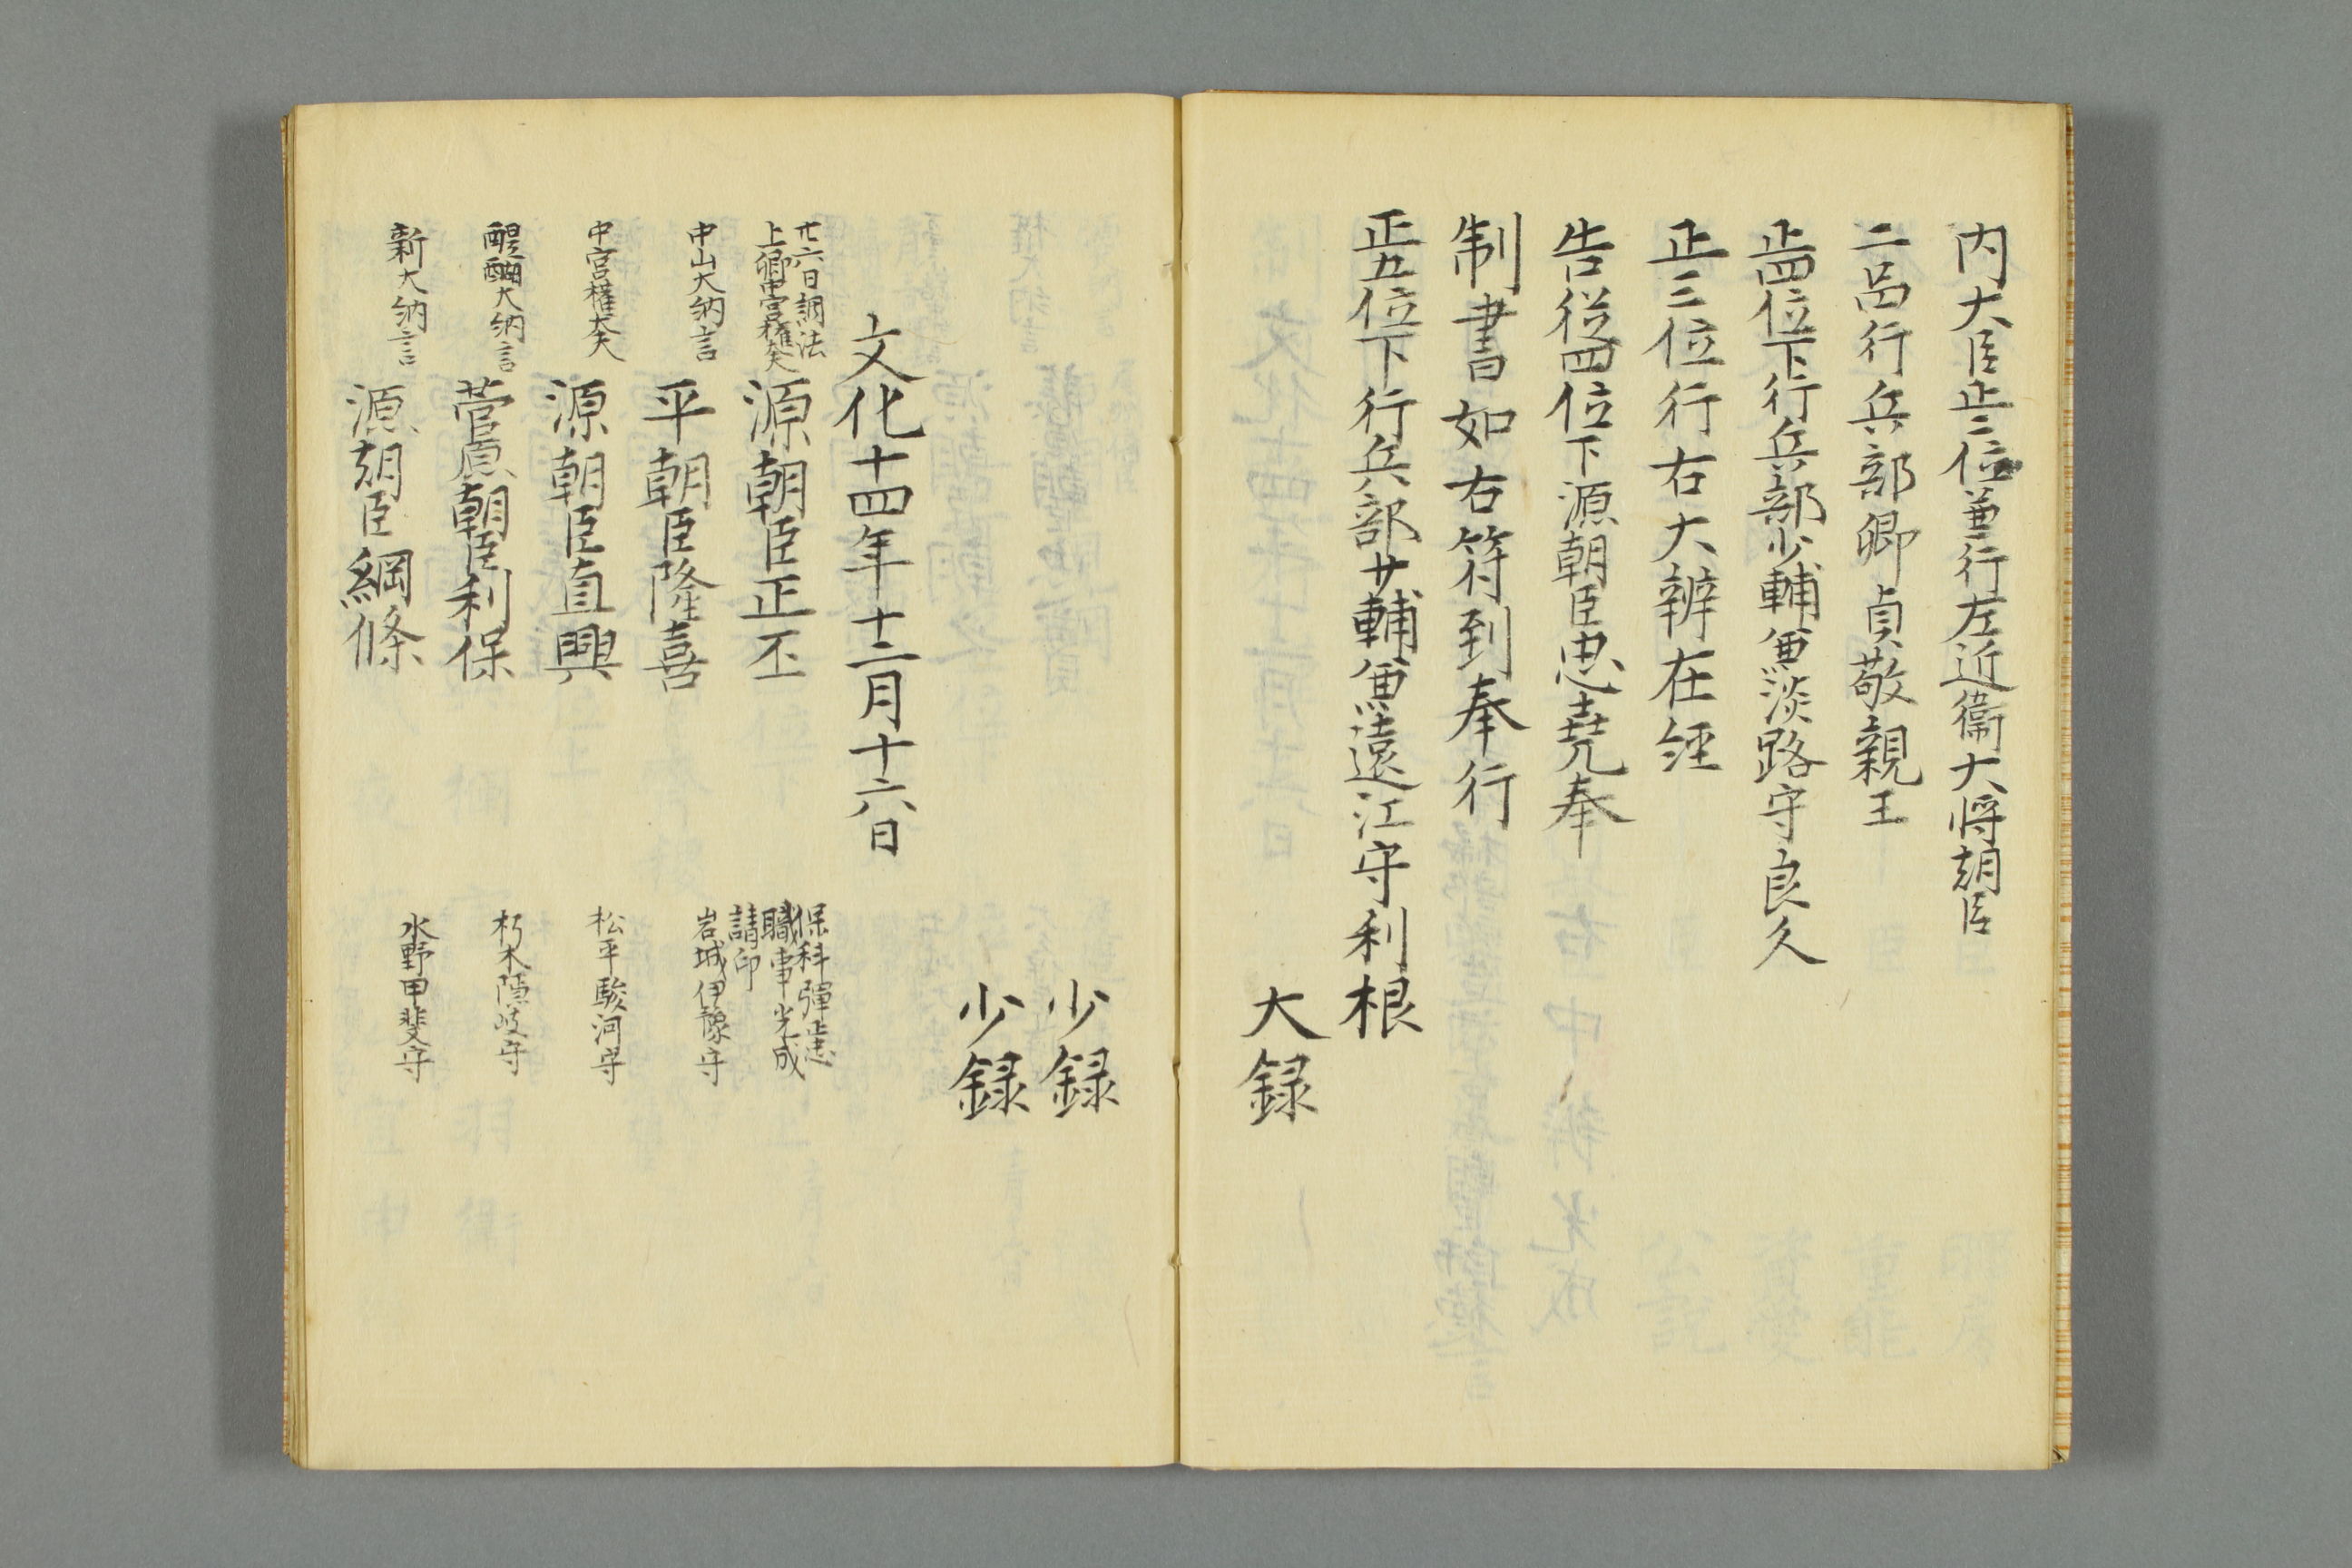 内大臣正二位兼行左近衛大将朝臣
二品行兵部卿貞敬親王
正四位下行兵部少輔兼淡路守良久
正三位行右大辨在経
告従四位下源朝臣忠堯奉
制書如右符到奉行
正五位下行兵部少輔兼遠江守利根
大録
少録
少録
文化十四年十二月十六日
廿六日調法
上卿中宮権大夫
源朝臣正丕
保科弾正忠
職事光成
請印
中山大納言
平朝臣隆喜
岩城伊豫守
中宮権大夫
源朝臣直興
松平駿河守
醍醐大納言
菅原朝臣利保
朽木隠岐守
新大納言
源朝臣綱條
水野甲斐守